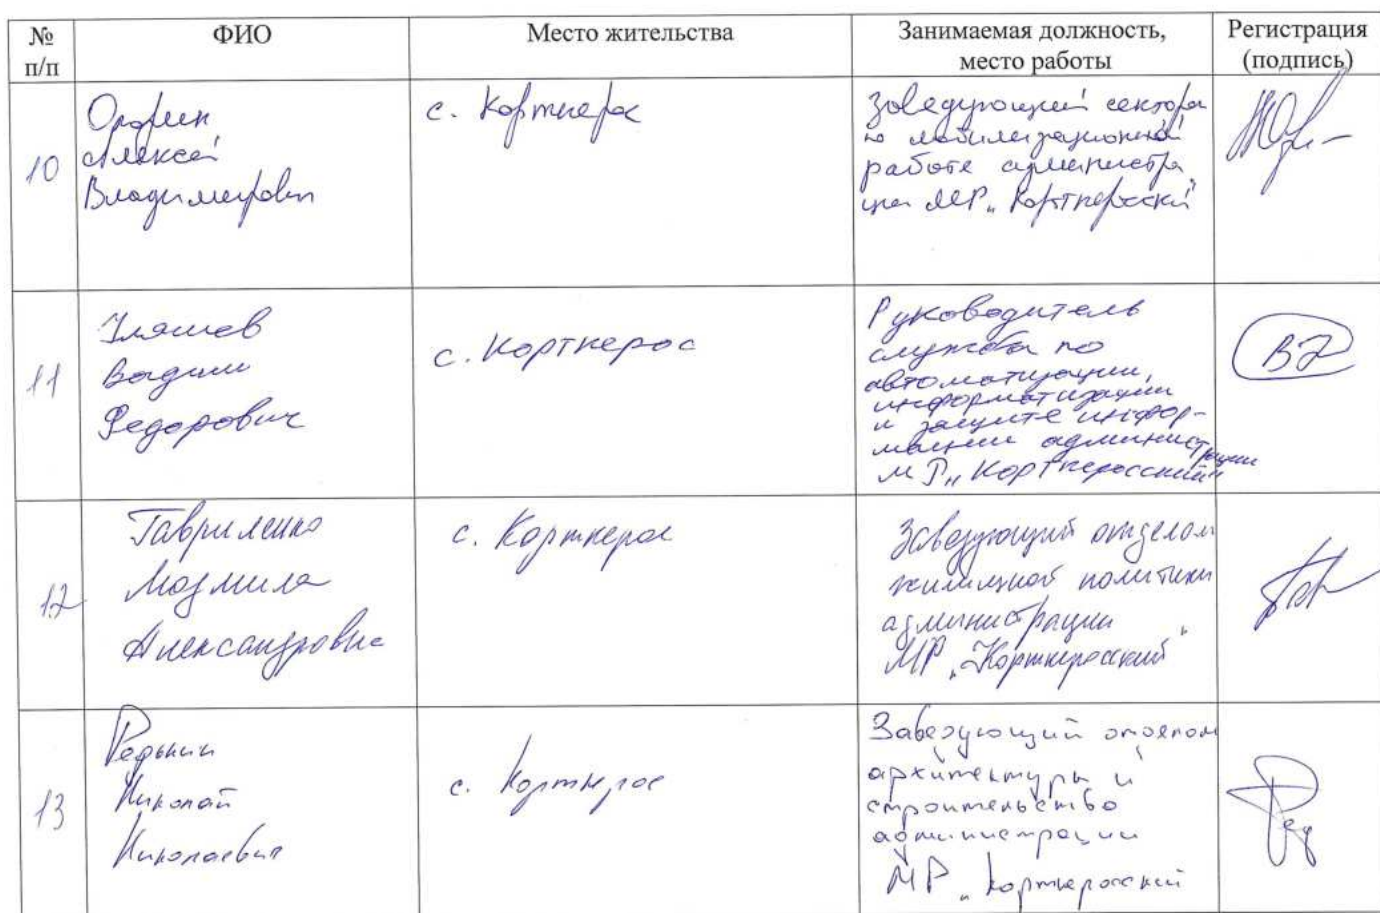 № п/п
ФИО
Место жительства
Занимаемая должность, место работы
Регистрация (подпись)
10
Алексей
Владимирович
с. Корткерос
Заведующий сектора
по мобилизационной
работе администра
ции МР „Корткеросский"
11
Уляшев
Вадим
Федорович
с. Корткерос
Руководитель
службы по
автоматизации,
информатизации
и защите инфор-
мации администрации
МР „Корткеросский"
12
Гавриленко
Людмила
Александровна
с. Корткерос
Заведующий отделом
жилищной политики
администрации
МР „Корткеросский"
13
Редькин
Николай
Николаевич
с. Корткерос
Заведующий отделом
архитектуры и
строительства
администрации
МР „Корткеросский
Ред